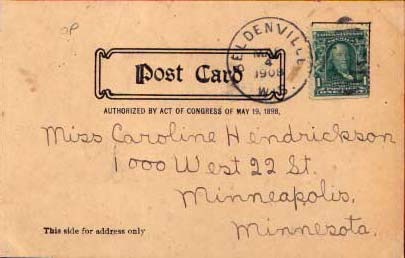 ELDENVILLE
MAY
4
1908
W
Post Card
AUTHORIZED BY ACT OF CONGRESS OF MAY 19, 1898.
Miss Caroline Hendrickson
1000 West 22 St.
Minneapolis,
Minnesota.
This side for address only